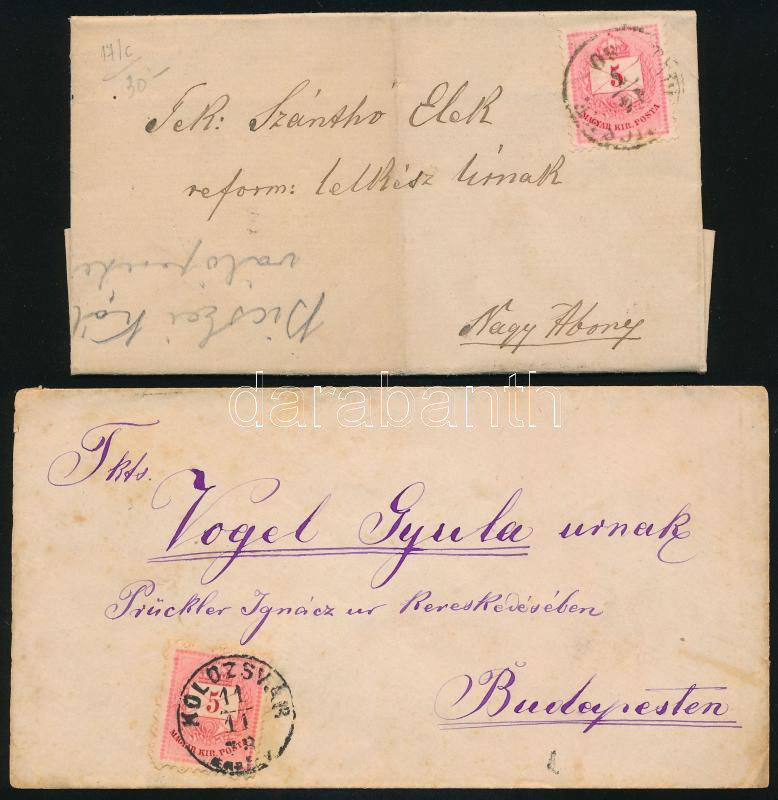 17/c
30-
5
MAGYAR KIR. POSTA
Tek: Szánthó Elek
reform: lelkész Úrnak
Nagy Abony
darabanth
Tkts.
Vogel Gyula urnak
Prückler Ignácz ur kereskedésében
Budapesten
5
MAGYAR KIR. POSTA
KOLOZSVÁR
11
11
78